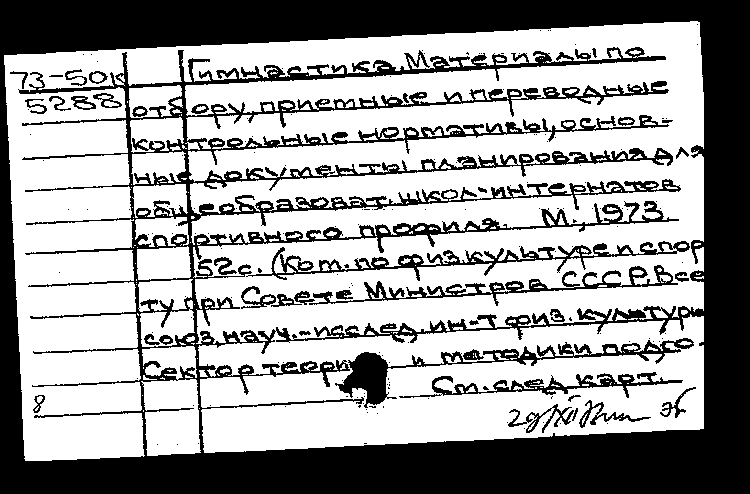 73-50к
5288
Гимнастика. Материалы по
отбору, приемные и переводные
контрольные нормативы, основ-
ные документы планирования для
общеобразоват. школ-интернатов
спортивного профиля. М., 1973.
52с. (Ком. по физ.культуре и спор
ту при Совете Министров СССР. Все
союз. науч.-исслед. ин-т физ. культуры
Сектор теории и методики подго-
См. след карт.
8